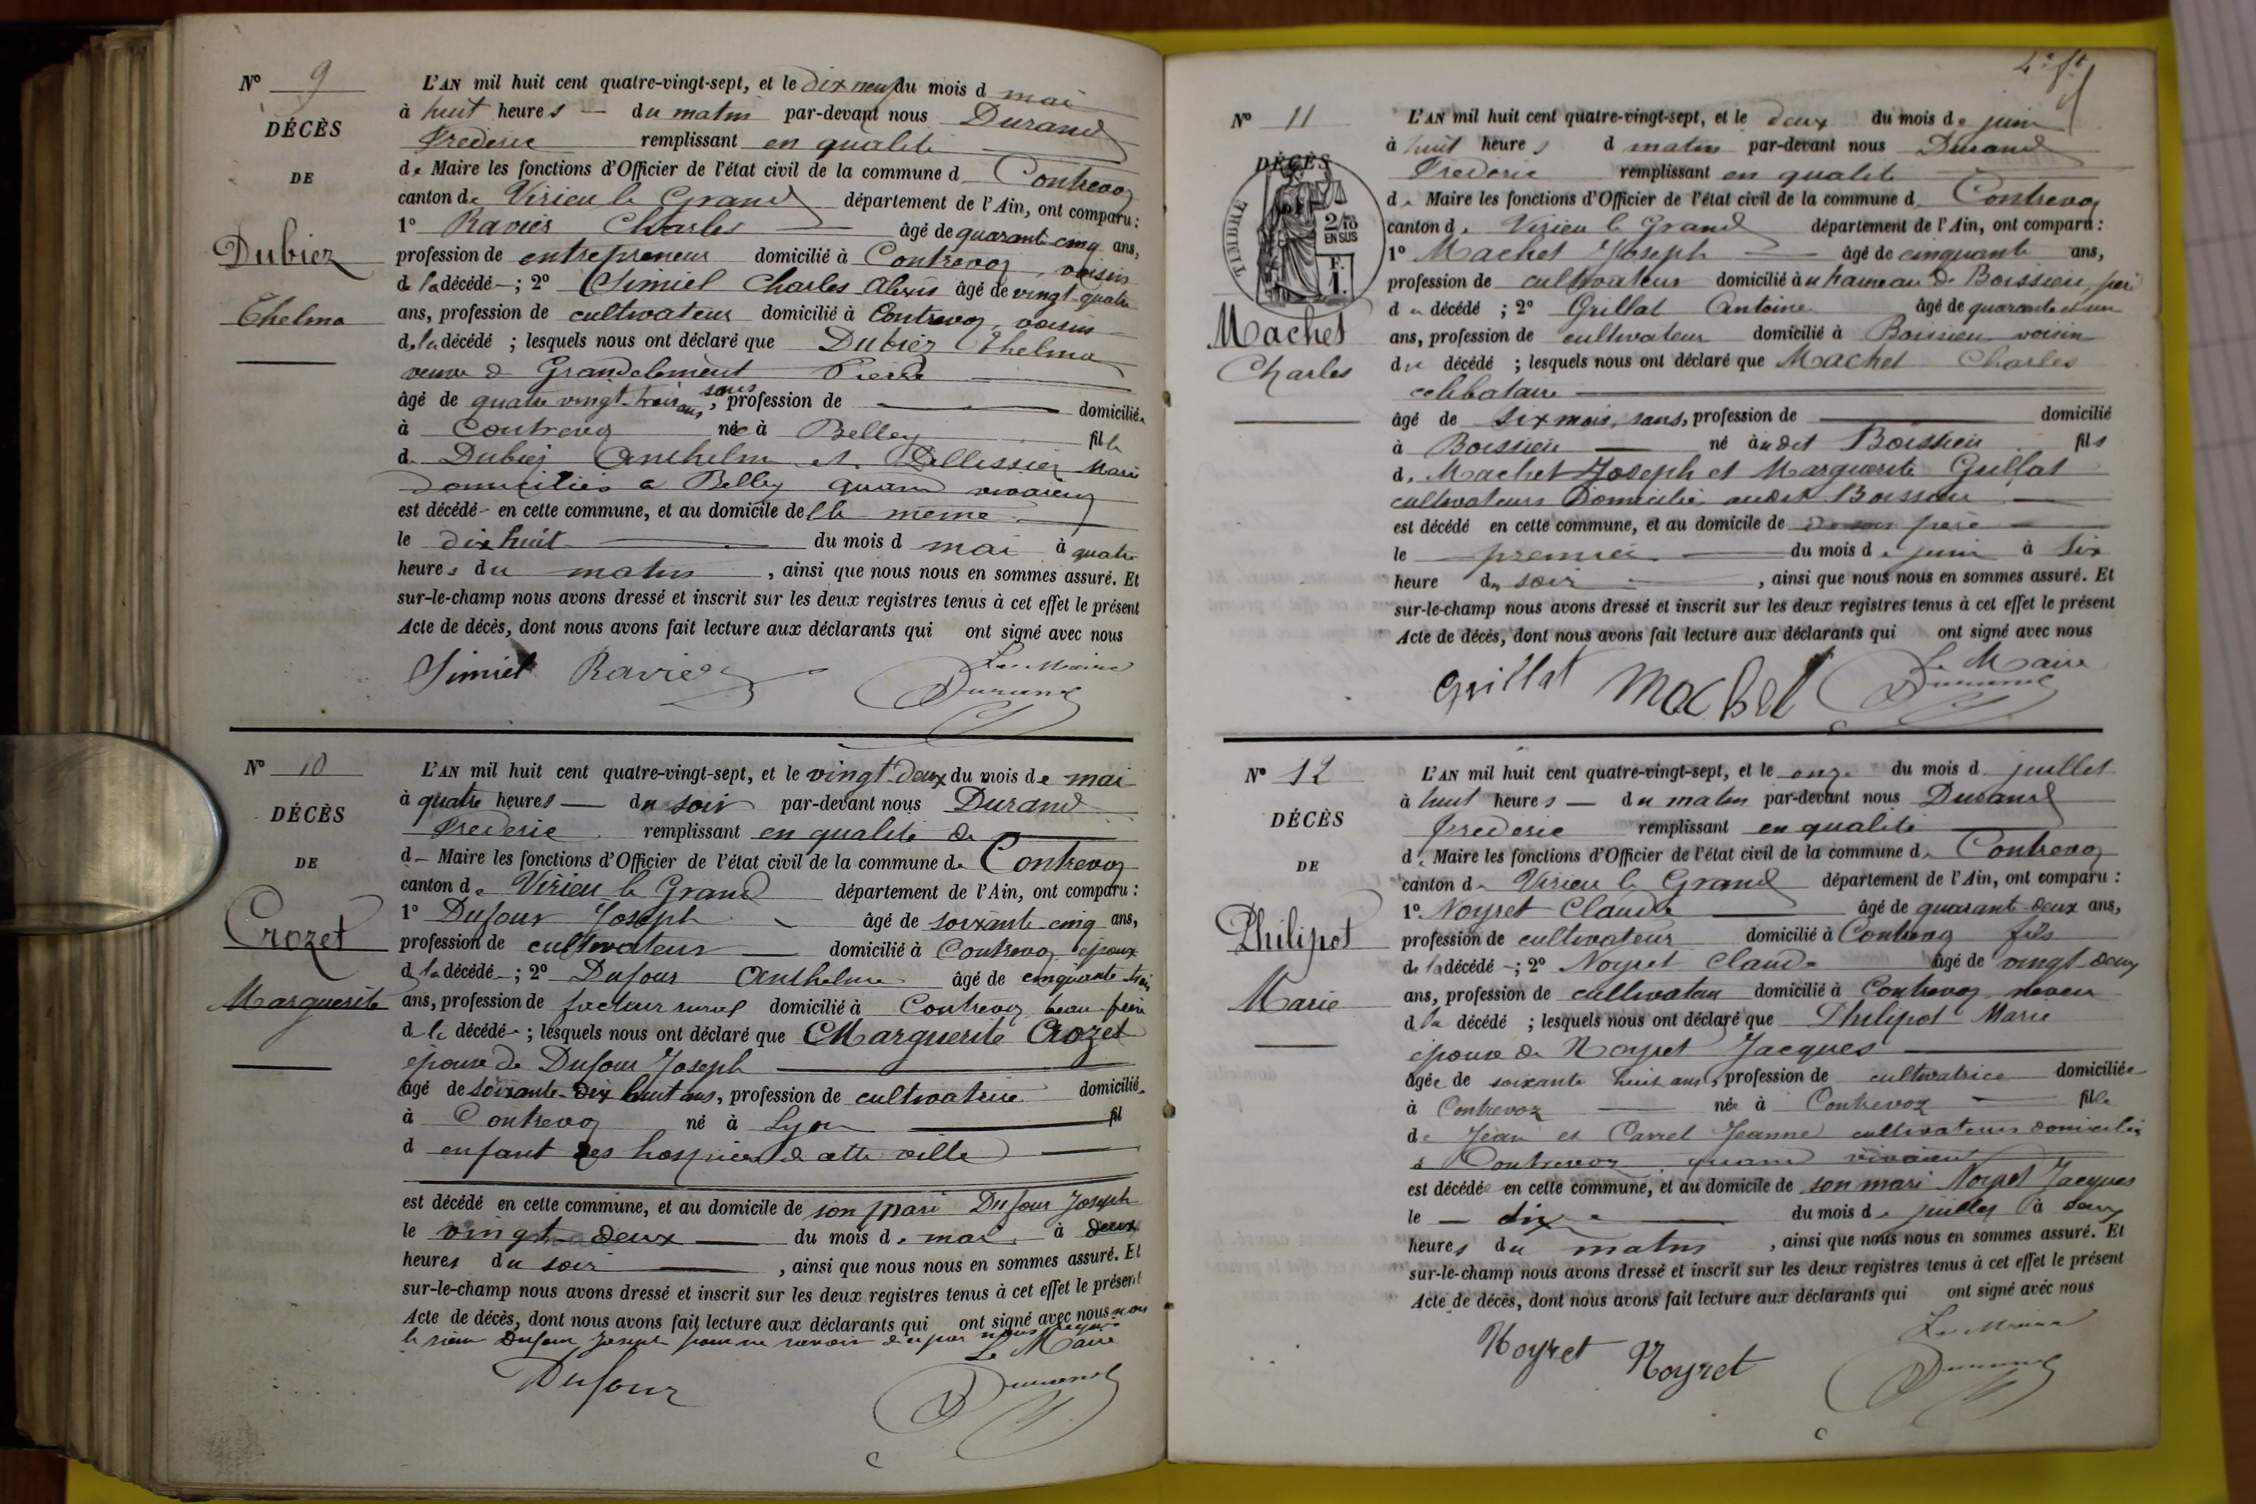 N° 9
DÉCÈS
DE
Dubiez
Thelma
L'AN mil huit cent quatre-vingt-sept, et le dix neuf du mois d mai
à huit heures — du matin par-devant nous Durand
Frederic remplissant en qualité
de Maire les fonctions d'Officier de l'état civil de la commune d Contrevoz
canton de Virieu le Grand département de l'Ain, ont comparu :
1° Ravier Charles âgé de quarante cinq ans,
profession de entrepreneur domicilié à Contrevoz, voisin
de la décédé ; 2° Simiel Charles Alexis âgé de vingt quatre
ans, profession de cultivateur domicilié à Contrevoz, voisin
de la décédé ; lesquels nous ont déclaré que Dubiez Thelma
veuve de Grandclément Pierre
âgé de quatre vingt trois ans, sans profession de — domiciliée
à Contrevoz née à Belley fille
de Dubiez Anthelme et Pellissier Marie
domiciliés à Belley quand vivaient
est décédé en cette commune, et au domicile de elle même
le dix huit du mois d mai à quatre
heures du matin, ainsi que nous nous en sommes assuré. Et
sur-le-champ nous avons dressé et inscrit sur les deux registres tenus à cet effet le présent
Acte de décès, dont nous avons fait lecture aux déclarants qui ont signé avec nous
Simiel Ravier Le Maire
Durand
N° 10
DÉCÈS
DE
Crozet
Marguerite
L'AN mil huit cent quatre-vingt-sept, et le vingt deux du mois de mai
à quatre heures — du soir par-devant nous Durand
Frederic remplissant en qualité de
d — Maire les fonctions d'Officier de l'état civil de la commune de Contrevoz
canton de Virieu le Grand département de l'Ain, ont comparu :
1° Dufour Joseph âgé de soixante cinq ans,
profession de cultivateur — domicilié à Contrevoz époux
de la décédé ; 2° Dufour Anthelme âgé de cinquante trois
ans, profession de facteur rural domicilié à Contrevoz beau frère
de la décédé ; lesquels nous ont déclaré que Marguerite Crozet
épouse de Dufour Joseph
âgé de soixante dix huit ans, profession de cultivatrice domiciliée
à Contrevoz né à Lyon fil
d enfant des hospices de cette ville
est décédé en cette commune, et au domicile de son mari Dufour Joseph
le vingt deux — du mois de mai à deux
heures du soir —, ainsi que nous nous en sommes assuré. Et
sur-le-champ nous avons dressé et inscrit sur les deux registres tenus à cet effet le présent
Acte de décès, dont nous avons fait lecture aux déclarants qui ont signé avec nous non
le sieur Dufour Joseph pour ne savoir
Le Maire
Dufour Durand
4e ft
N° 11
DÉCÈS
TIMBRE
2/10
EN SUS
F.
1.
Machet
Charles
L'AN mil huit cent quatre-vingt-sept, et le deux du mois de juin
à huit heures d matin par-devant nous Durand
Frederic remplissant en qualité
de Maire les fonctions d'Officier de l'état civil de la commune d Contrevoz
canton de Virieu le Grand département de l'Ain, ont comparu :
1° Machet Joseph — âgé de cinquante ans,
profession de cultivateur domicilié à u hameau de Boissieu, père
du décédé ; 2° Grillat Antoine âgé de quarante et un
ans, profession de cultivateur domicilié à Boissieu voisin
du décédé ; lesquels nous ont déclaré que Machet Charles
celibataire
âgé de six mois, sans, profession de — domicilié
à Boissieu — né à udit Boissieu fils
de Machet Joseph et Marguerite Grillat
cultivateurs domiciliés audit Boissieu
est décédé en cette commune, et au domicile de de son père
le premier — du mois de juin à six
heure du soir —, ainsi que nous nous en sommes assuré. Et
sur-le-champ nous avons dressé et inscrit sur les deux registres tenus à cet effet le présent
Acte de décès, dont nous avons fait lecture aux déclarants qui ont signé avec nous
Grillat Machet Le Maire
Durand
N° 12
DÉCÈS
DE
Philipot
Marie
L'AN mil huit cent quatre-vingt-sept, et le onze du mois d juillet
à huit heures — du matin par-devant nous Durand
Frederic remplissant en qualité
de Maire les fonctions d'Officier de l'état civil de la commune de Contrevoz
canton de Virieu le Grand département de l'Ain, ont comparu :
1° Noyret Claude — âgé de quarant deux ans,
profession de cultivateur domicilié à Contrevoz fils
de la décédé ; 2° Noyret Claude âgé de vingt deux
ans, profession de cultivateur domicilié à Contrevoz neveu
d la décédé ; lesquels nous ont déclaré que Philipot Marie
épouse de Noyret Jacques
âgée de soixante huit ans, profession de cultivatrice domiciliée
à Contrevoz — née à Contrevoz — fille
de Jean et Carrel Jeanne cultivateurs domiciliés
à Contrevoz quand vivaient
est décédée en cette commune, et au domicile de son mari Noyret Jacques
le — dix — du mois de juillet à deux
heures du matin, ainsi que nous nous en sommes assuré. Et
sur-le-champ nous avons dressé et inscrit sur les deux registres tenus à cet effet le présent
Acte de décès, dont nous avons fait lecture aux déclarants qui ont signé avec nous
Le Maire
Noyret Noyret Durand